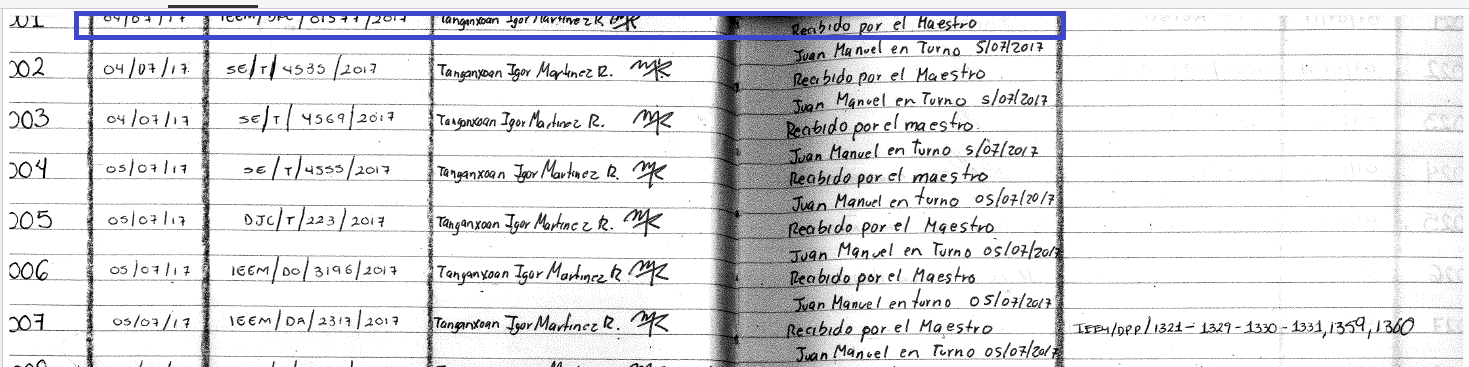 04/07/17 Tanganxoan Igor Martinez R. Recibido por el Maestro
Juan Manuel en Turno 5/07/2017
002 04/07/17 SE/T/4535/2017 Tanganxoan Igor Martinez R. Recibido por el Maestro
Juan Manuel en Turno 5/07/2017
003 04/07/17 SE/T/4569/2017 Tanganxoan Igor Martinez R. Recibido por el maestro.
Juan Manuel en Turno 5/07/2017
004 05/07/17 SE/T/4555/2017 Tanganxoan Igor Martinez R. Recibido por el maestro
Juan Manuel en turno 05/07/2017
005 05/07/17 DJC/T/223/2017 Tanganxoan Igor Martinez R. Recibido por el Maestro
Juan Manuel en Turno 05/07/2017
006 05/07/17 IEEM/DO/3196/2017 Tanganxoan Igor Martinez R. Recibido por el Maestro
Juan Manuel en turno 05/07/2017
007 05/07/17 IEEM/DA/2317/2017 Tanganxoan Igor Martinez R. Recibido por el Maestro IEEM/DPP/1321-1329-1330-1331,1359,1360
Juan Manuel en Turno 05/07/2017